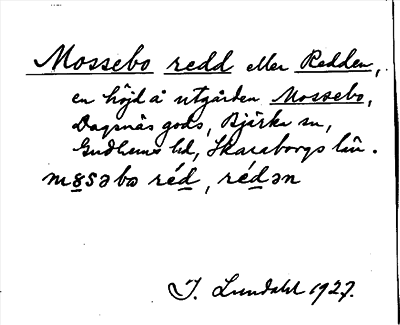 Mossebo redd eller Redden,
en höjd å utgården Mossebo,
Dagsnäs gods, Bjärka sn,
Gudhems hd, Skaraborgs län.
réd, rédən
I. Lundahl 1927.